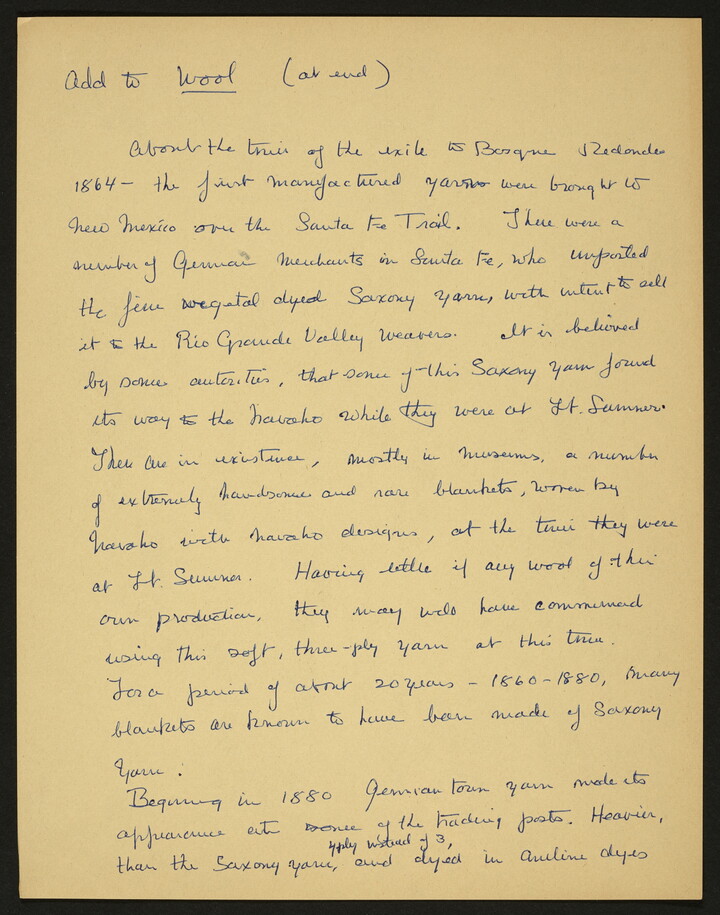 Add to Wool (at end)
About the time of the exile to Bosque Redondo
1864 – the first manufactured yarns were brought to
New Mexico over the Santa Fe Trail. There were a
number of German merchants in Santa Fe, who imported
the fine vegetal dyed Saxony yarn, with intent to sell
it to the Rio Grande Valley weavers. It is believed
by some autorities, that some of this Saxony yarn found
its way to the Navaho while they were at Ft. Sumner.
There are in existence, mostly in museums, a number
of extremely handsome and rare blankets, woven by
Navaho with Navaho designs, at the time they were
at Ft. Sumner. Having little if any wool of their
own production, they may well have commenced
using this soft, three-ply yarn at this time.
For a period of about 20 years – 1860–1880, many
blankets are known to have been made of Saxony
yarn.
Begining in 1880 Germantown yarn made its
appearance at some of the trading posts. Heavier,
4 ply instead of 3,
than the Saxony yarn, and dyed in aneline dyes